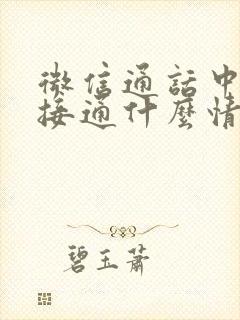 微信通話中
接通什麼情
碧玉蕭